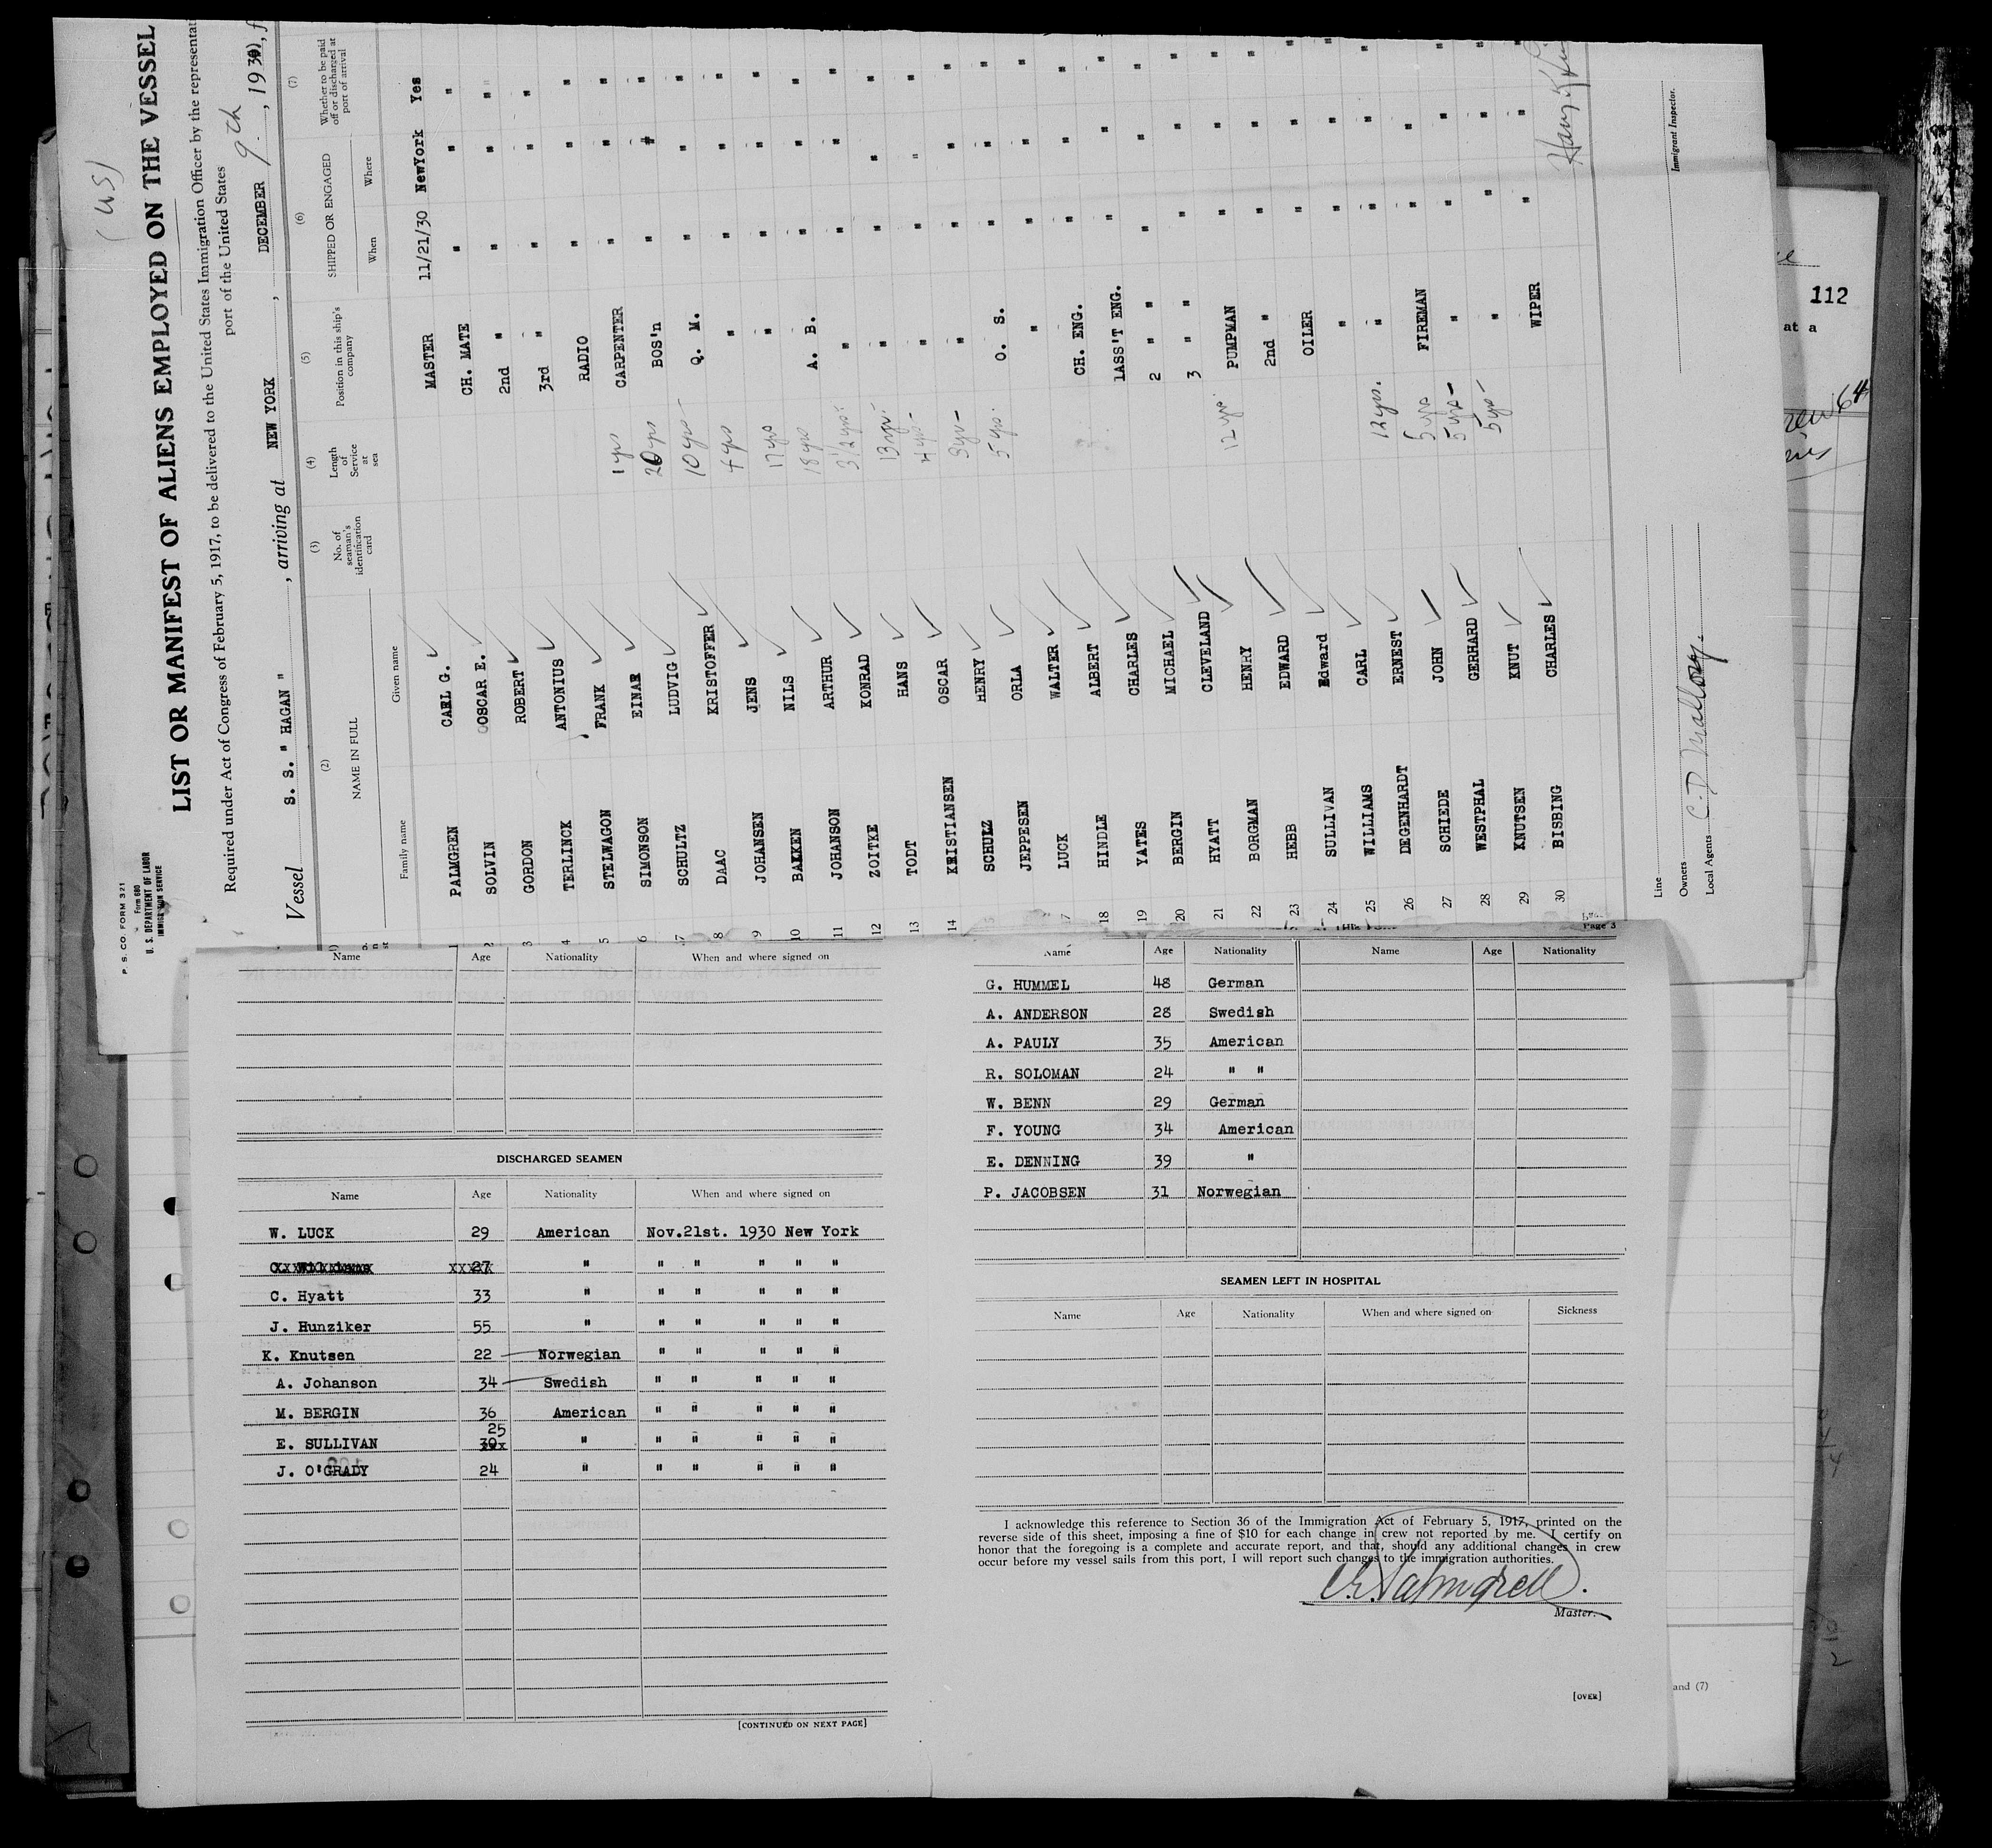 P. S. CO. FORM 321
Form 680
U. S. DEPARTMENT OF LABOR
IMMIGRATION SERVICE
(WS)
LIST OR MANIFEST OF ALIENS EMPLOYED ON THE VESSEL
Required under Act of Congress of February 5, 1917, to be delivered to the United States Immigration Officer by the representat
port of the United States
Vessel S. S. " HAGAN " , arriving at NEW YORK , DECEMBER 9th , 1930,
(2) (3) (4) (5) (6) (7)
NAME IN FULL No. of seaman's identification card Length of Service at sea Position in this ship's company SHIPPED OR ENGAGED Whether to be paid off or discharged at port of arrival
Family name Given name When Where
1 PALMGREN CARL G. MASTER 11/21/30 NewYork Yes
2 SOLVIN OSCAR E. CH. MATE " " "
3 GORDON ROBERT 2nd " " " "
4 TERLINCK ANTONIUS 3rd " " " "
5 STELWAGON FRANK RADIO " " "
6 SIMONSON EINAR 1 yrs CARPENTER " " "
7 SCHULTZ LUDVIG 20 yrs BOS'n " " "
8 DAAC KRISTOFFER 10 yrs Q. M. " " "
9 JOHANSEN JENS 4 yrs " " " "
10 BAKKEN NILS 17 yrs " " " "
11 JOHANSON ARTHUR 18 yrs A. B. " " "
12 ZOITKE KONRAD 3 1/2 yrs. " " " "
13 TODT HANS 13 yrs. " " " "
14 KRISTIANSEN OSCAR 4 yrs - " " " "
SCHULZ HENRY " " " "
JEPPESEN ORLA 5 yrs. O. S. " " "
7 LUCK WALTER " " " "
18 HINDLE ALBERT CH. ENG. " " "
19 YATES CHARLES 1ASS'T ENG. " " "
20 BERGIN MICHAEL 2 " " " " "
21 HYATT CLEVELAND 3 " " " " "
22 BORGMAN HENRY 12 yrs. PUMPMAN " " "
23 HEBB EDWARD 2nd " " " "
24 SULLIVAN Edward OILER " " "
25 WILLIAMS CARL " " " "
26 DEGENHARDT ERNEST 12 yrs. " " " "
27 SCHIEDE JOHN 5 yrs FIREMAN " " "
28 WESTPHAL GERHARD 5 yrs - " " " "
29 KNUTSEN KNUT 5 yrs - " " " "
30 BISBING CHARLES WIPER " " "
Line
Owners C. D. Mallory.
Local Agents
Immigrant Inspector.
112
at a
64
and (7)
Name Age Nationality When and where signed on
DISCHARGED SEAMEN
Name Age Nationality When and where signed on
W. LUCK 29 American Nov.21st. 1930 New York
27 " " " " " "
C. Hyatt 33 " " " " " "
J. Hunziker 55 " " " " " "
K. Knutsen 22 Norwegian " " " " "
A. Johanson 34 Swedish " " " " "
M. BERGIN 36 American " " " " "
E. SULLIVAN 25 30xx " " " " " "
J. O'GRADY 24 " " " " " "
[CONTINUED ON NEXT PAGE]
Page 3
Name Age Nationality Name Age Nationality
G. HUMMEL 48 German
A. ANDERSON 28 Swedish
A. PAULY 35 American
R. SOLOMAN 24 " "
W. BENN 29 German
F. YOUNG 34 American
E. DENNING 39 "
P. JACOBSEN 31 Norwegian
SEAMEN LEFT IN HOSPITAL
Name Age Nationality When and where signed on Sickness
I acknowledge this reference to Section 36 of the Immigration Act of February 5, 1917, printed on the
reverse side of this sheet, imposing a fine of $10 for each change in crew not reported by me. I certify on
honor that the foregoing is a complete and accurate report, and that, should any additional changes in crew
occur before my vessel sails from this port, I will report such changes to the immigration authorities.
C. G. Palmgren.
Master.
[OVER]